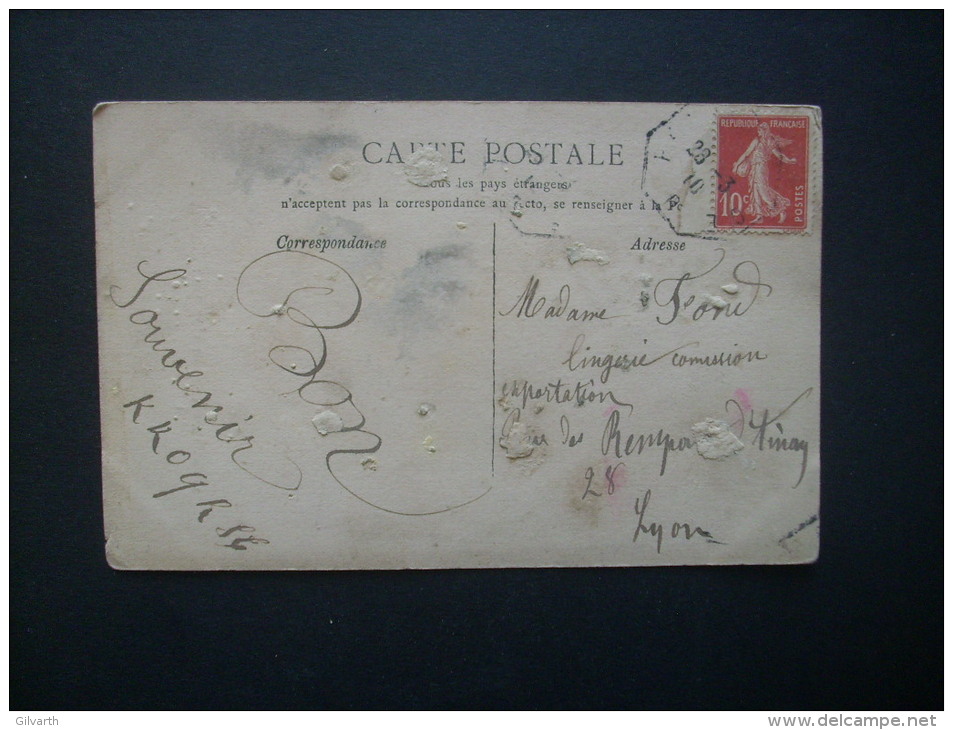 CARTE POSTALE
Tous les pays étrangers
n'acceptent pas la correspondance au recto, se renseigner à la P
Correspondance
Adresse
REPUBLIQUE FRANÇAISE
10c
POSTES
23 -3
10
Souvenir
Bon
Madame Fond
lingerie comission
exportation
Rue des Rempa d'Ainay
28
Lyon
Gilvarth
www.delcampe.net